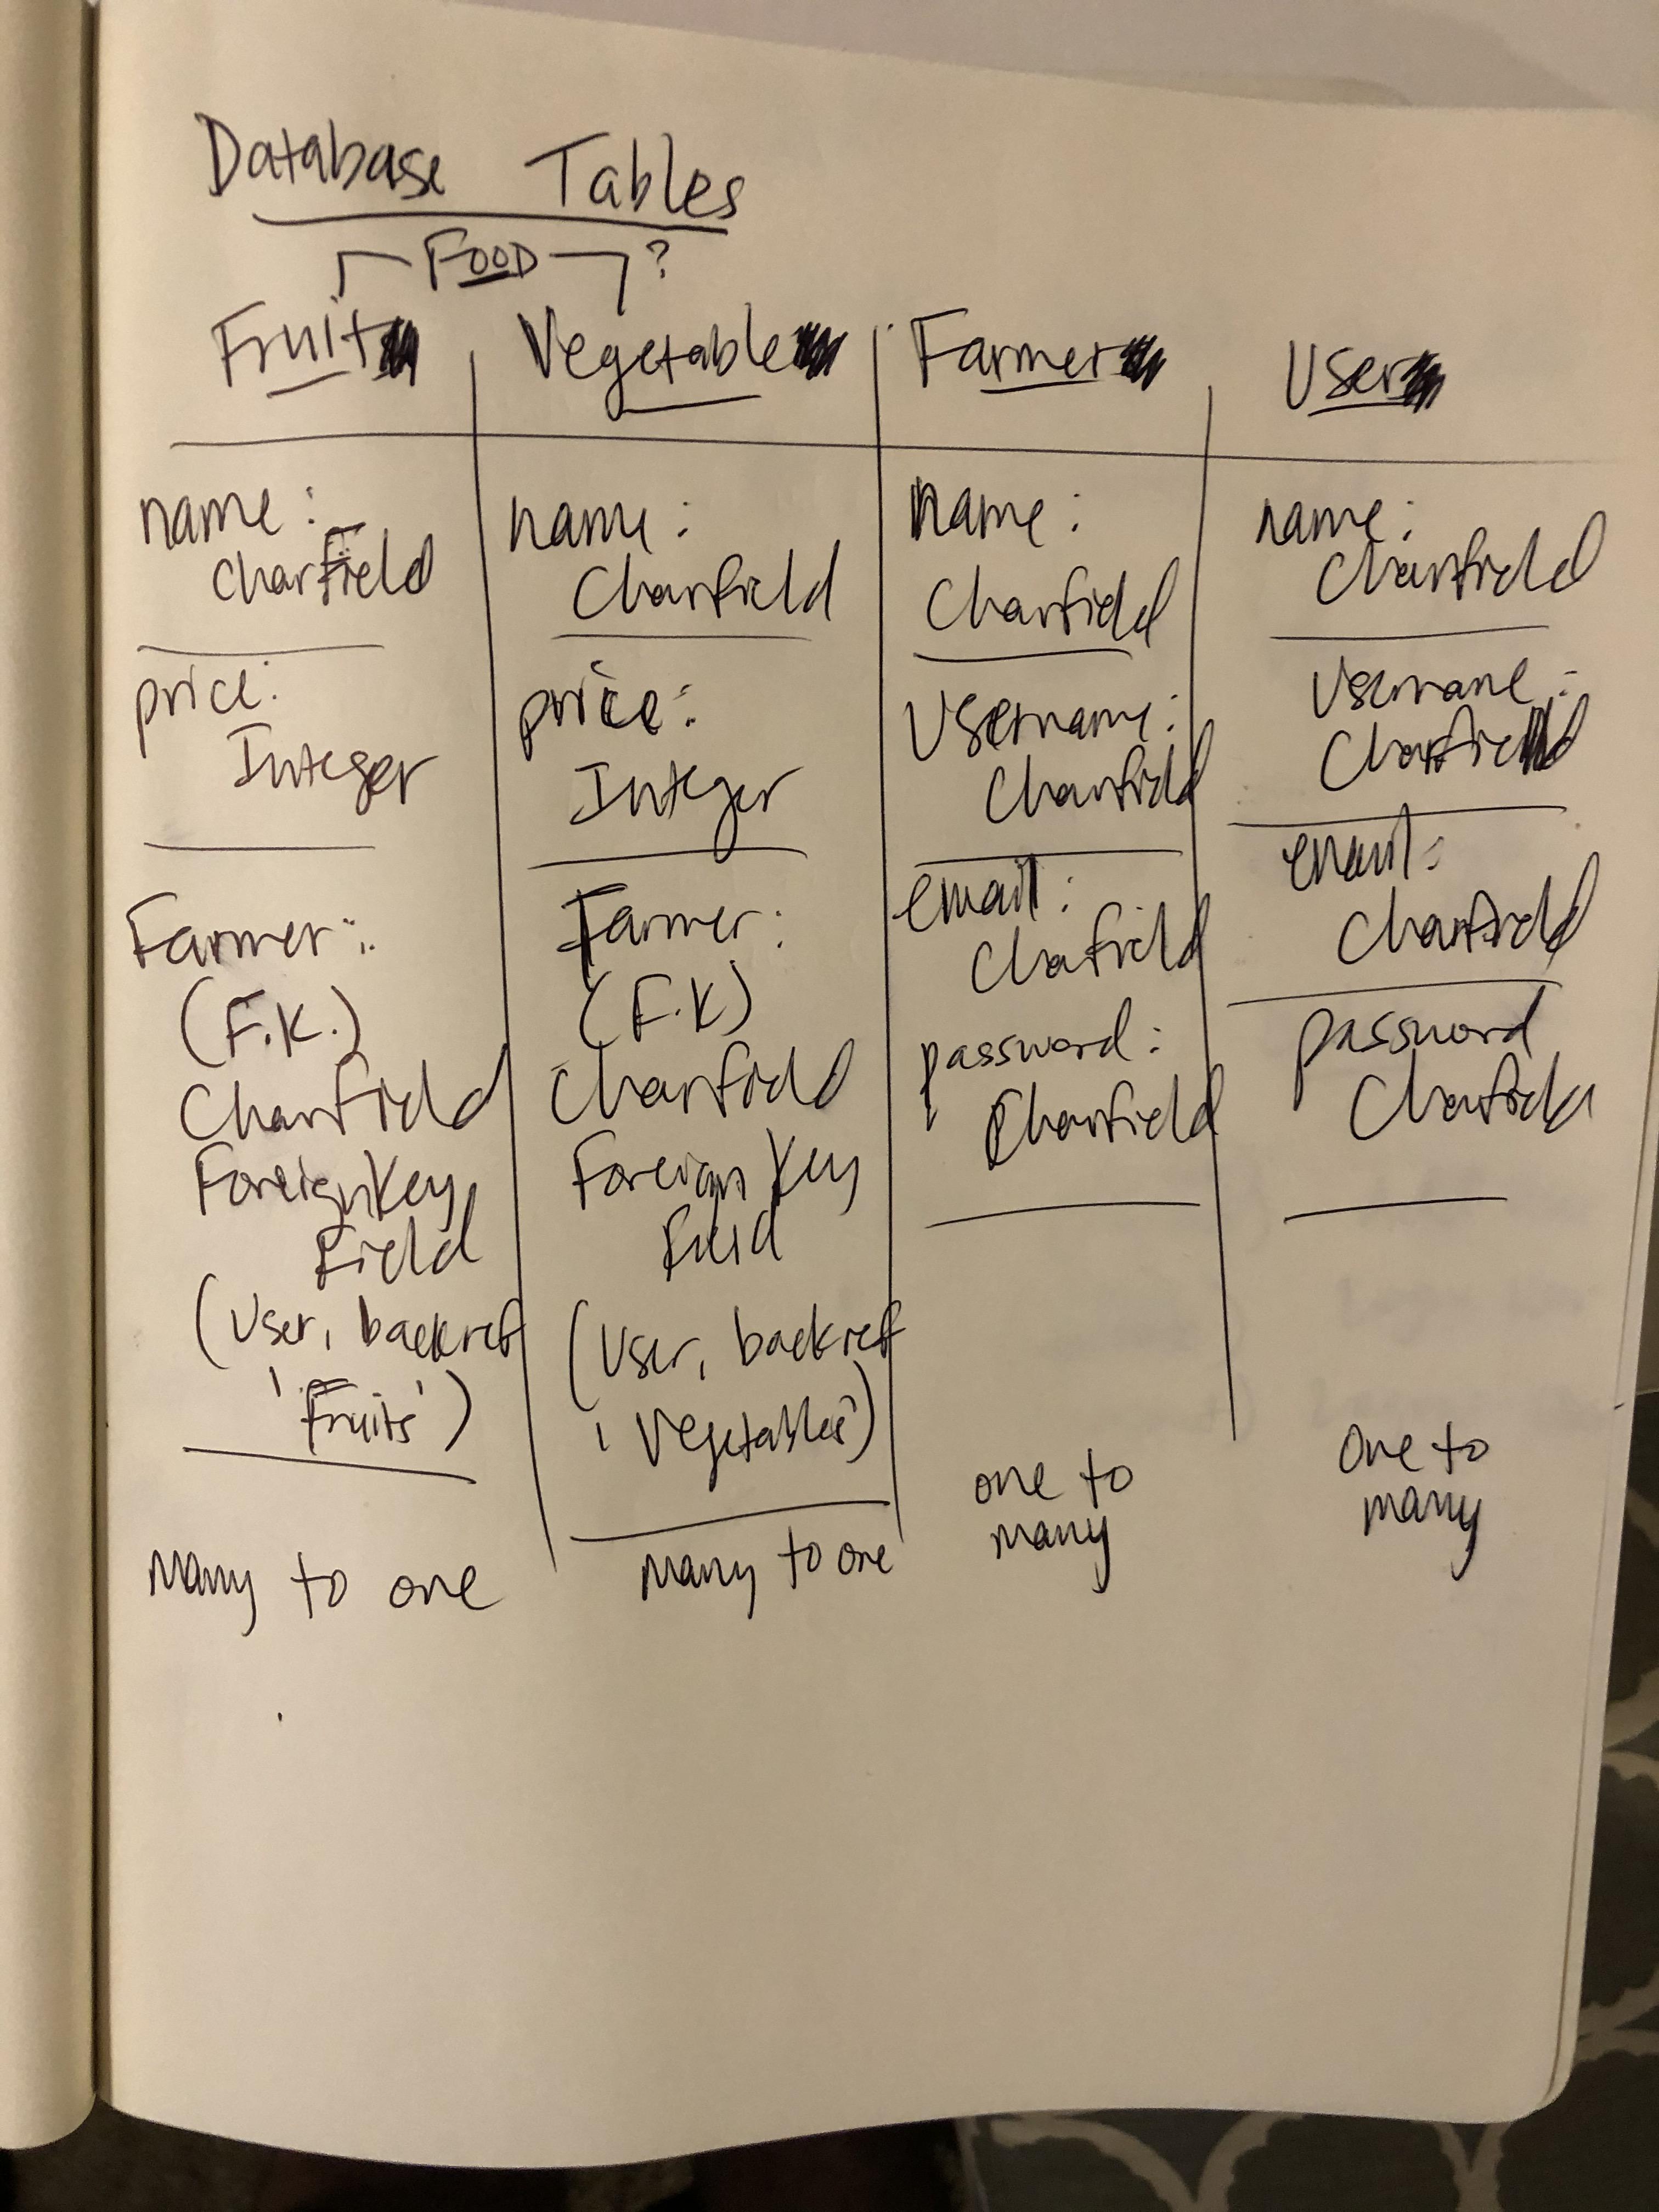 Database Tables
FOOD ?
Fruit
name:
Charfield
price:
Integer
Farmer:
(F.K.)
Charfield
ForeignKey
Field
(User, backref
'Fruits')
Many to one
Vegetable
name:
Charfield
price:
Integer
Farmer:
(F.K)
Charfield
Foreign Key
Field
(User, backref
'Vegetables')
Many to one
Farmer
Name:
Charfield
Username:
Charfield
email:
Chafield
password:
Charfield
one to
many
User
name:
Charfield
Username:
Charfield
email:
Charfield
password
Charfield
One to
many